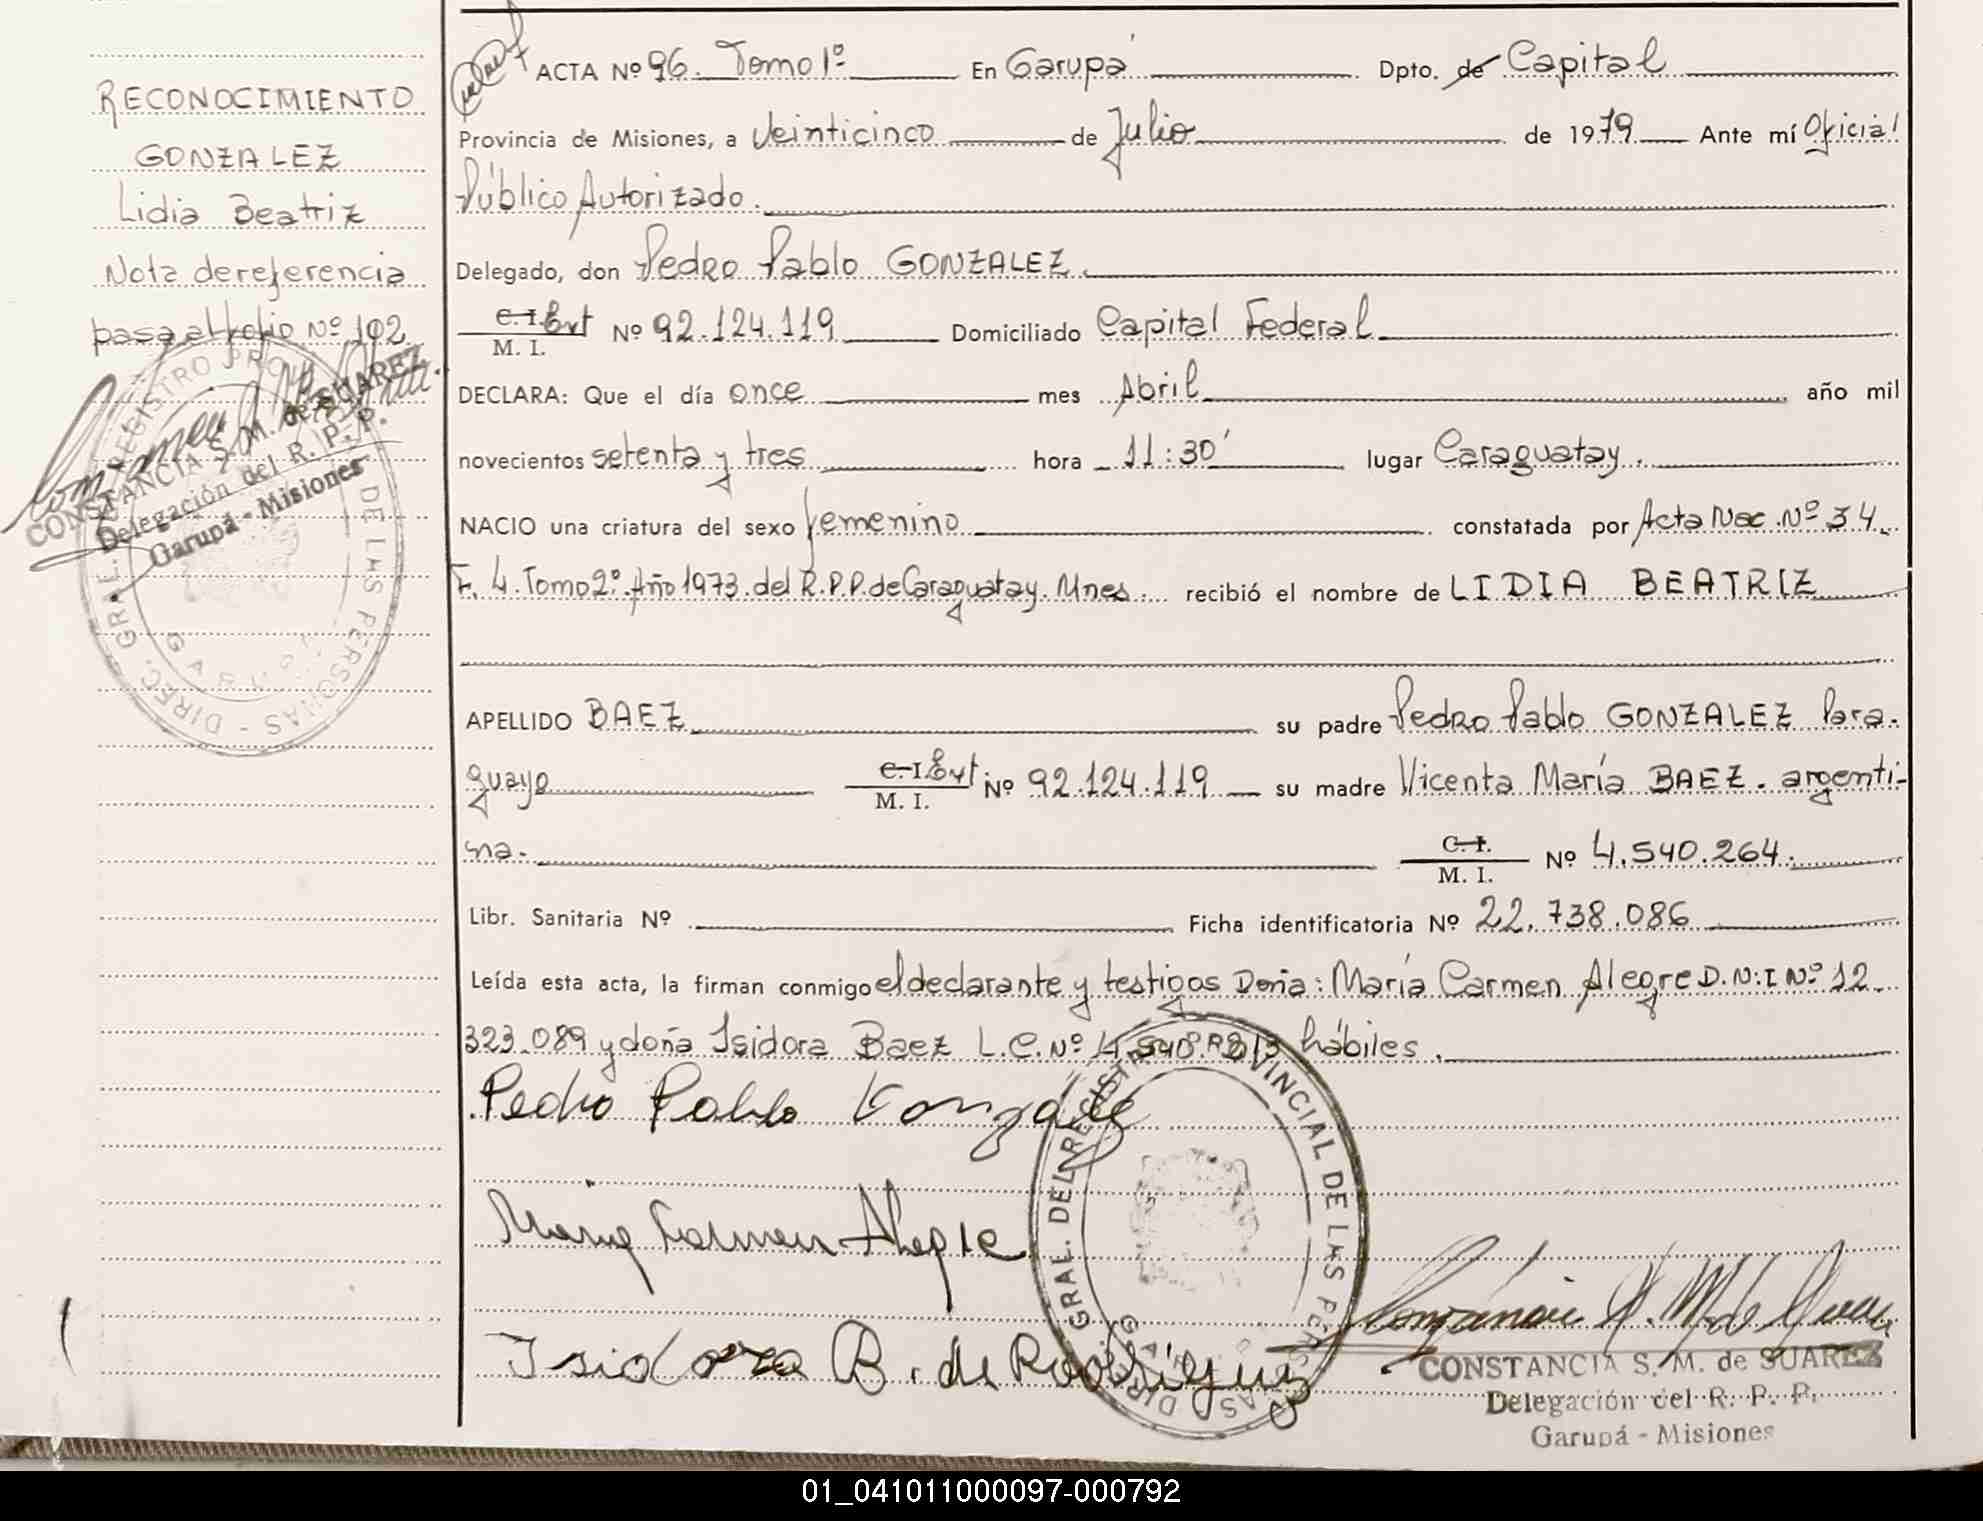 RECONOCIMIENTO
GONZALEZ
Lidia Beatriz
Nota de referencia
pasa al folio Nº 102
CONSTANCIA S. M. de SUAREZ
Delegación del R. P. P.
Garupá - Misiones
DIREC. GRAL. DEL REGISTRO PROVINCIAL DE LAS PERSONAS -
GARUPA
ACTA Nº 96. Tomo 1º En Garupá Dpto. de Capital
Provincia de Misiones, a Veinticinco de Julio de 1979 Ante mí Oficial
Público Autorizado.
Delegado, don Pedro Pablo GONZALEZ.
C. I. Ext Nº 92.124.119 Domiciliado Capital Federal
M. I.
DECLARA: Que el día once mes Abril año mil
novecientos setenta y tres hora 11:30' lugar Caraguatay.
NACIO una criatura del sexo femenino constatada por Acta Nac. Nº 34.
F. 4. Tomo 2º. Año 1973. del R.P.P. de Caraguatay. Mnes. recibió el nombre de LIDIA BEATRIZ
APELLIDO BAEZ su padre Pedro Pablo GONZALEZ Para-
guayo C. I. Ext Nº 92.124.119 su madre Vicenta María BAEZ. argenti-
M. I.
na. C. I. Nº 4.540.264.
M. I.
Libr. Sanitaria Nº Ficha identificatoria Nº 22.738.086
Leída esta acta, la firman conmigo el declarante y testigos Doña: María Carmen Alegre D.N.I Nº 12.
323.089 y doña Isidora Baez L.C. Nº 4.540.813 hábiles.
Pedro Pablo Gonzalez
Maria Carmen Alegre
Isidora B. de Rodriguez
DIREC. GRAL. DEL REGISTRO PROVINCIAL DE LAS PERSONAS
CONSTANCIA S. M. de SUAREZ
Delegación del R. P. P.
Garupá - Misiones
01_041011000097-000792